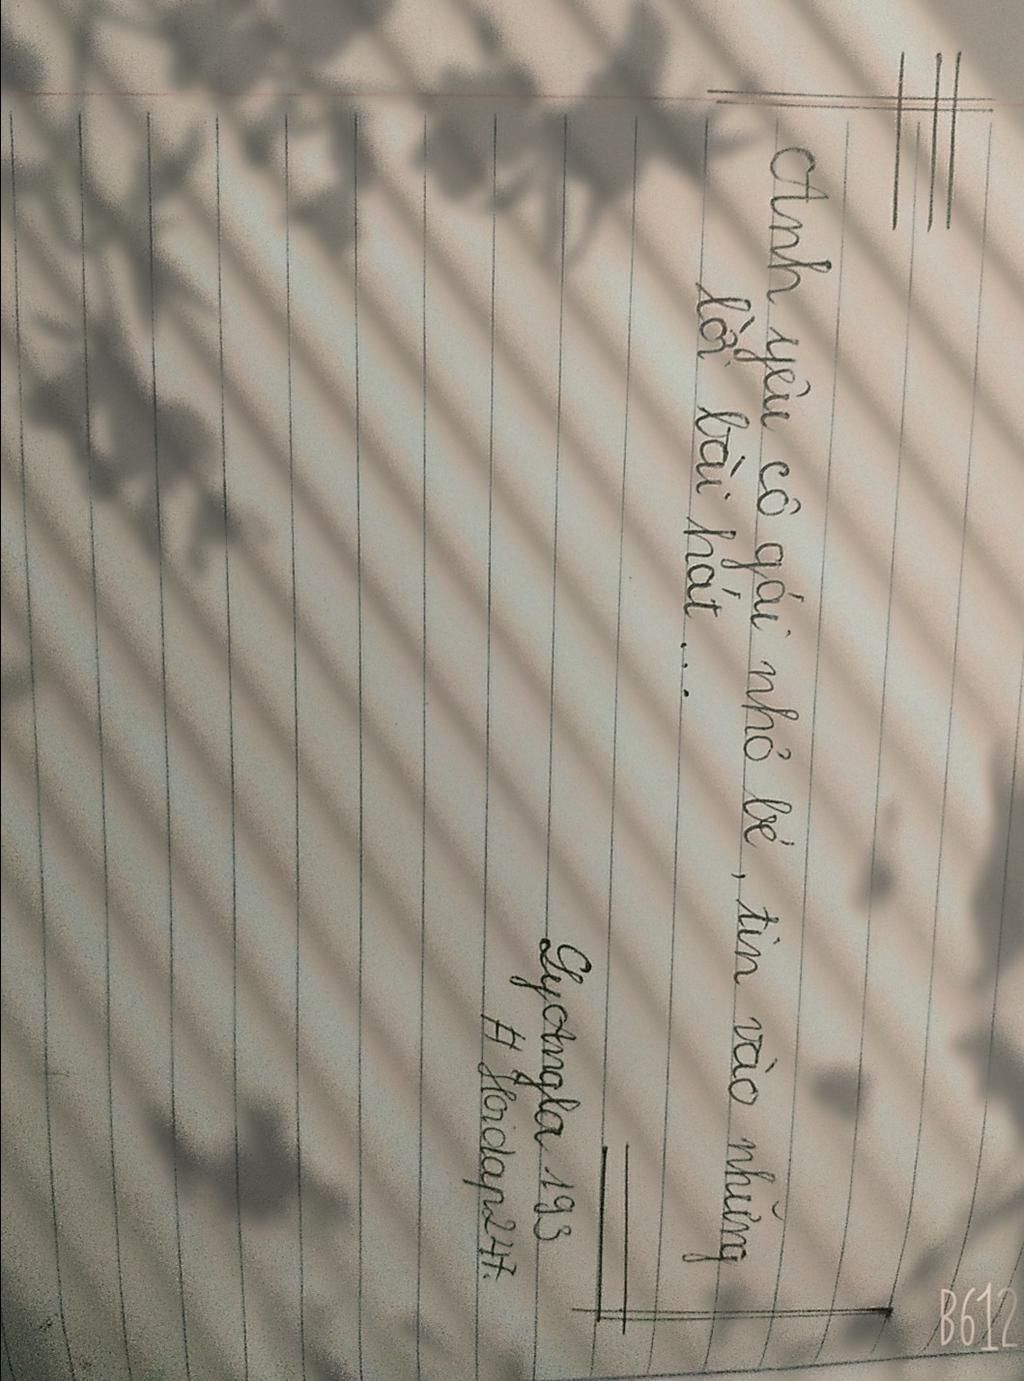 Anh yêu cô gái nhỏ bé, tin vào những
lời bài hát....
Lyomgla 193
# Hoidap247.
B612